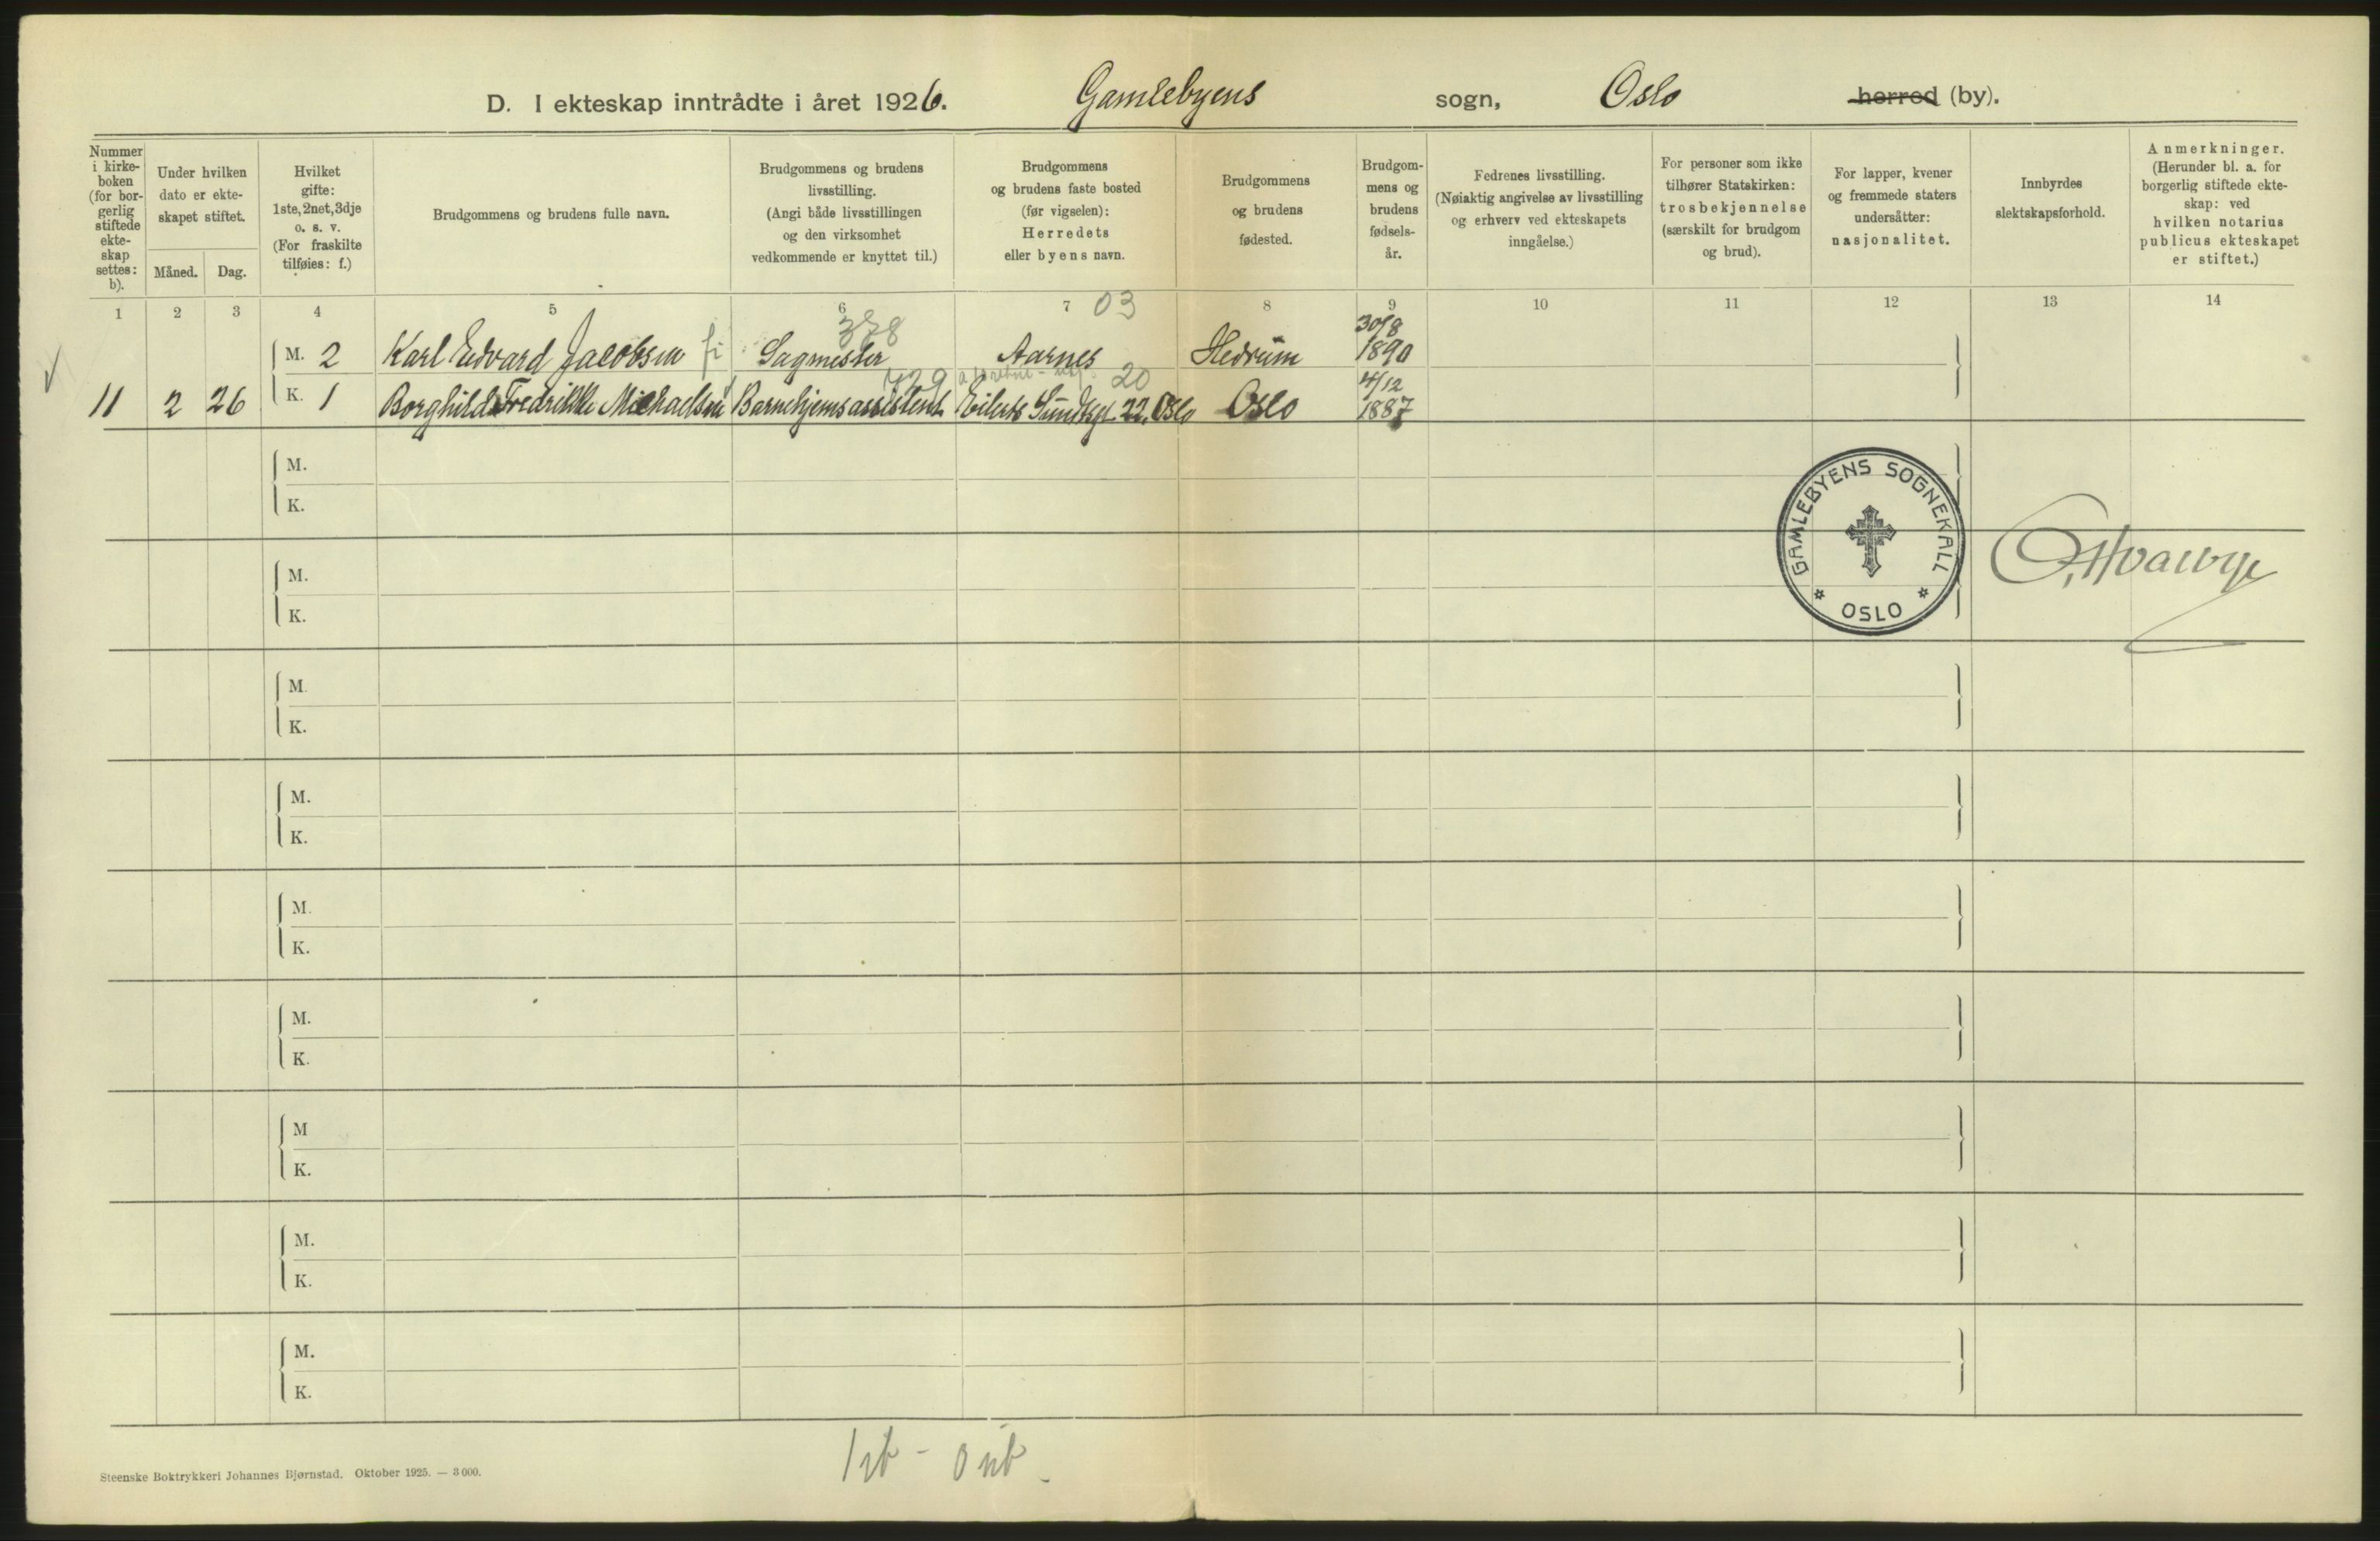 D. I ekteskap inntrådte i året 1926. Gamlebyens sogn, Oslo herred (by).
Nummer
i kirke-
boken
(for bor-
gerlig
stiftede
ekte-
skap
settes:
b).
Under hvilken
dato er ekte-
skapet stiftet.
Måned. Dag.
Hvilket
gifte:
1ste, 2net, 3dje
o. s. v.
(For fraskilte
tilføies: f.)
Brudgommens og brudens fulle navn.
Brudgommens og brudens
livsstilling.
(Angi både livsstillingen
og den virksomhet
vedkommende er knyttet til.)
Brudgommens
og brudens faste bosted
(før vigselen):
Herredets
eller byens navn.
Brudgommens
og brudens
fødested.
Brudgom-
mens og
brudens
fødsels-
år.
Fedrenes livsstilling.
(Nøiaktig angivelse av livsstilling
og erhverv ved ekteskapets
inngåelse.)
For personer som ikke
tilhører Statskirken:
trosbekjennelse
(særskilt for brudgom
og brud).
For lapper, kvener
og fremmede staters
undersåtter:
nasjonalitet.
Innbyrdes
slektskapsforhold.
Anmerkninger.
(Herunder bl. a. for
borgerlig stiftede ekte-
skap: ved
hvilken notarius
publicus ekteskapet
er stiftet.)
1 2 3 4 5 6 7 8 9 10 11 12 13 14
378 03 30/8
M. 2 Karl Edvard Jacobsen fi Sagmester Aarnes Hedrum 1890
729 20 4/12
11 2 26 K. 1 Borghild Fredrikke Michaelsen Barnehjemsassistent Eilert Sundtsgt. 22. Oslo Oslo 1887
M.
K.
GAMLEBYENS SOGNEKALL
OSLO
M.
K.
M.
K.
M.
K.
M.
K.
M.
K.
M
K.
M.
K.
M.
K.
Steenske Boktrykkeri Johannes Bjørnstad. Oktober 1925. — 3 000.